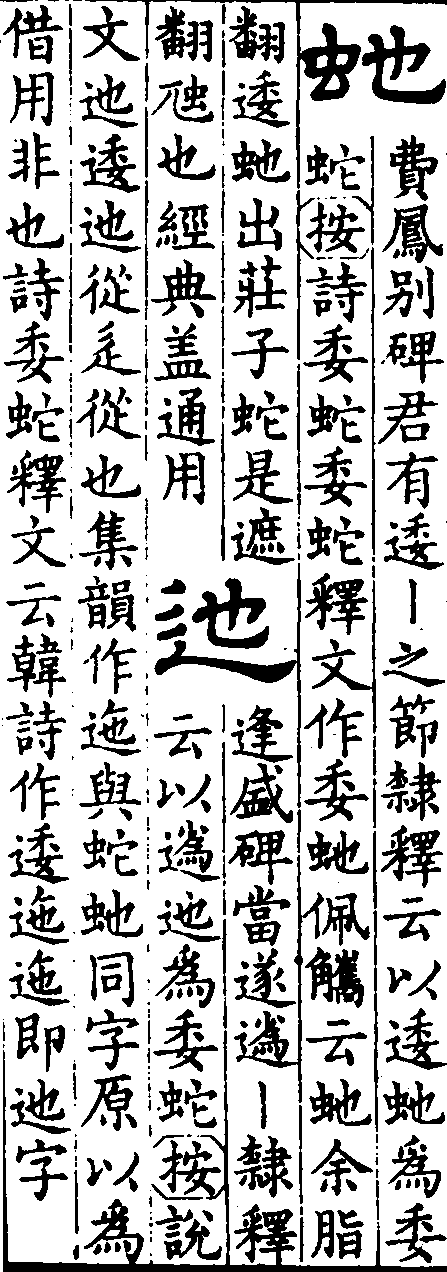 虵
費鳳别碑君有逶丨之節隸釋云以逶虵爲委
蛇按詩委蛇委蛇釋文作委虵佩觿云虵余脂
翻逶虵出莊子蛇是遮
翻虺也經典盖通用
迆
逢盛碑當遂丨隸釋
云以迆爲委蛇按説
文迆逶迆從辵從也集韻作迤與蛇虵同字原以爲
借用非也詩委蛇釋文云韓詩作逶迤迤即迆字